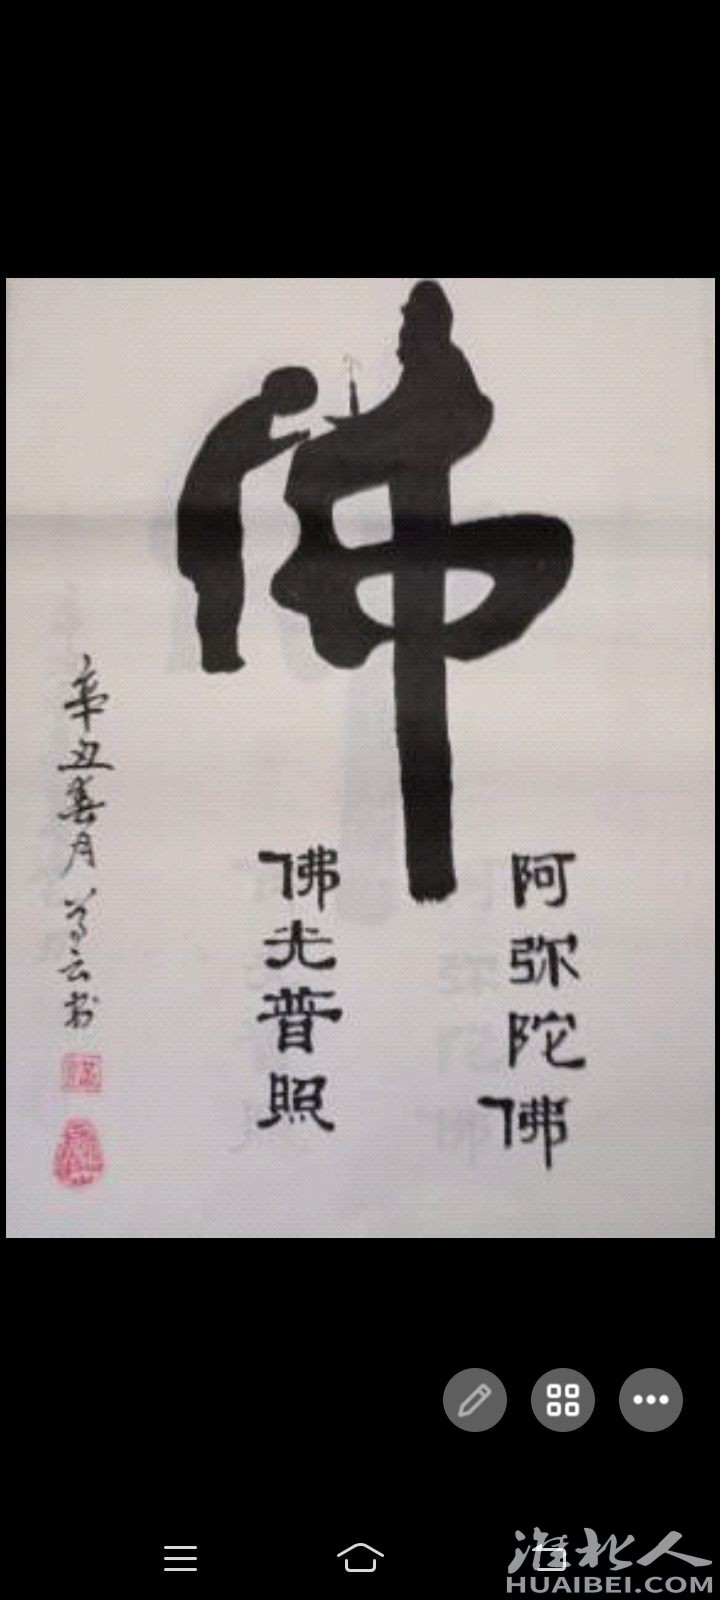 佛
阿弥陀佛
佛光普照
辛丑春月
云书
淮北人
HUAIBEI.COM